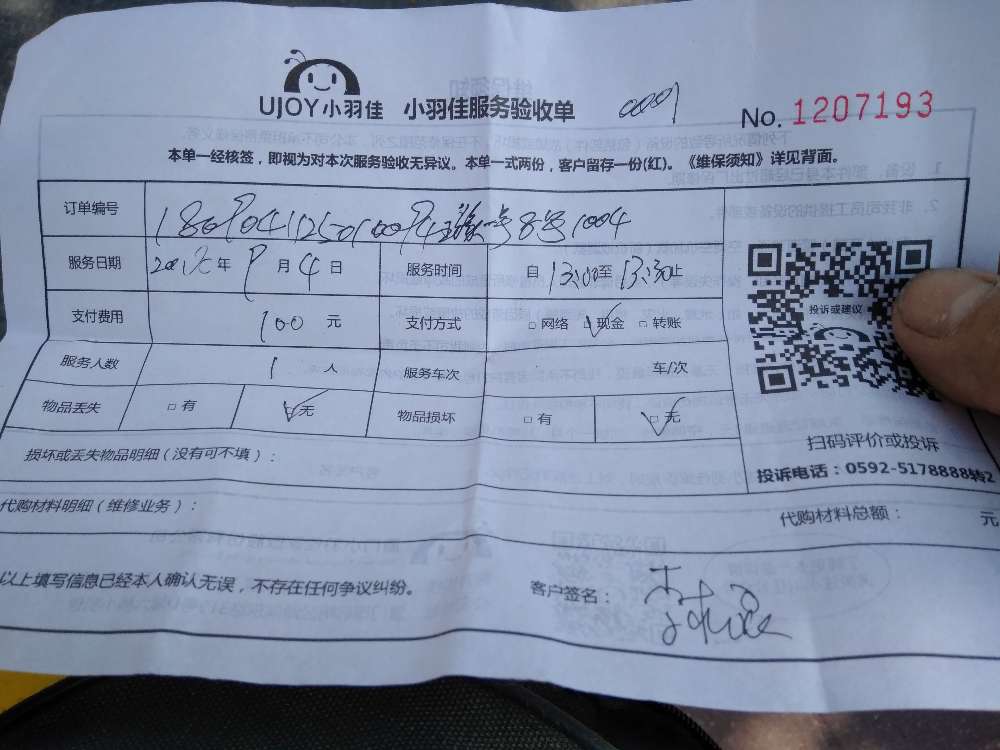 UJOY小羽佳 小羽佳服务验收单 0001 No. 1207193
本单一经核签，即视为对本次服务验收无异议。本单一式两份，客户留存一份(红)。《维保须知》详见背面。
订单编号 号8号1004
服务日期 年 月 4 日 服务时间 自 13:00 至 13:30 止
支付费用 100 元 支付方式 □网络 □现金 □转账
投诉或建议
服务人数 1 人 服务车次 车/次
物品丢失 □有 □无 物品损坏 □有 □无
扫码评价或投诉
损坏或丢失物品明细(没有可不填)：
投诉电话：0592-5178888转2
代购材料明细(维修业务)：
代购材料总额： 元
以上填写信息已经本人确认无误，不存在任何争议纠纷。 客户签名：